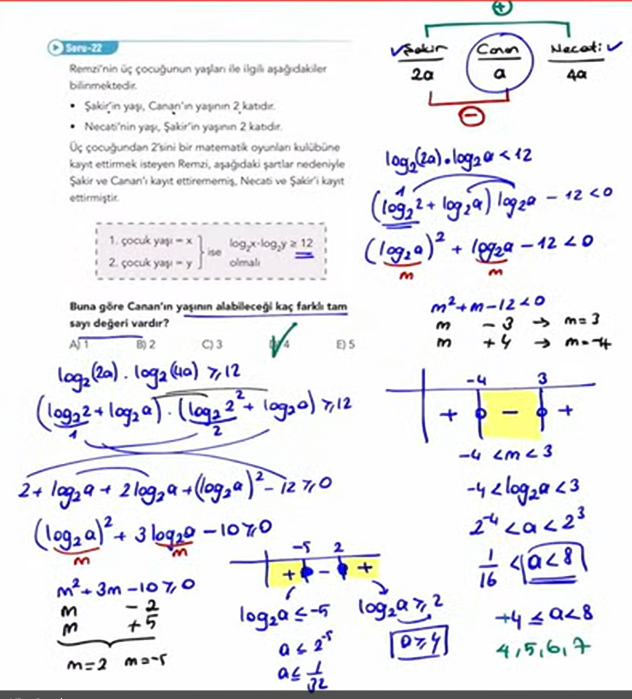 Soru-22
Remzi'nin üç çocuğunun yaşları ile ilgili aşağıdakiler
bilinmektedir.
• Şakir'in yaşı, Canan'ın yaşının 2 katıdır.
• Necati'nin yaşı, Şakir'in yaşının 2 katıdır.
Üç çocuğundan 2'sini bir matematik oyunları kulübüne
kayıt ettirmek isteyen Remzi, aşağıdaki şartlar nedeniyle
Şakir ve Canan'ı kayıt ettirememiş, Necati ve Şakir'i kayıt
ettirmiştir.
1. çocuk yaşı = x
2. çocuk yaşı = y
ise
log₂x·log₂y ≥ 12
olmalı
Buna göre Canan'ın yaşının alabileceği kaç farklı tam
sayı değeri vardır?
A) 1 B) 2 C) 3 D) 4 E) 5
+
✓Şakir Canan Necati✓
2a a 4a
−
log₂(2a)·log₂a < 12
1
(log₂2 + log₂a) log₂a − 12 < 0
(log₂a)² + log₂a − 12 < 0
m m
m² + m − 12 < 0
m − 3 → m = 3
m + 4 → m = −4
−4 3
+ − +
−4 < m < 3
−4 < log₂a < 3
2⁻⁴ < a < 2³
1/16 < a < 8
→4 ≤ a < 8
4, 5, 6, 7
log₂(2a) · log₂(4a) ≥ 12
(log₂2 + log₂a) · (log₂2² + log₂a) ≥ 12
1 2
2 + log₂a + 2log₂a + (log₂a)² − 12 ≥ 0
(log₂a)² + 3log₂a − 10 ≥ 0
m m
m² + 3m − 10 ≥ 0
m − 2
m + 5
m = 2 m = −5
−5 2
+ − +
log₂a ≤ −5 log₂a ≥ 2
a ≤ 2⁻⁵ a ≥ 4
a ≤ 1/32